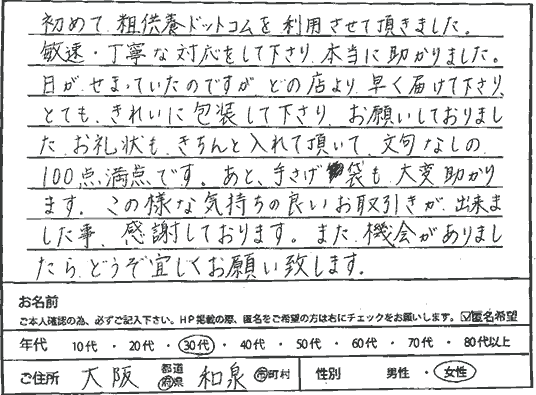 初めて 粗供養ドットコムを利用させて頂きました。
敏速・丁寧な対応をして下さり 本当に助かりました。
日がせまっていたのですが どの店より 早く届けて下さり、
とても、きれいに包装して下さり、お願いしておりまし
た お礼状も、きちんと入れて頂いて、文句なしの
100点満点です。あと、手さげ袋も、大変助かり
ます。この様な気持ちの良いお取引きが、出来ま
した事、感謝しております。また、機会がありまし
たら、どうぞ宜しくお願い致します。
お名前
ご本人確認の為、必ずご記入下さい。HP掲載の際、匿名をご希望の方は右にチェックをお願いします。☑匿名希望
年代 10代 ・ 20代 ・ 30代 ・ 40代 ・ 50代 ・ 60代 ・ 70代 ・ 80代以上
ご住所 大阪 都道府県 和泉 市町村 性別 男性 ・ 女性